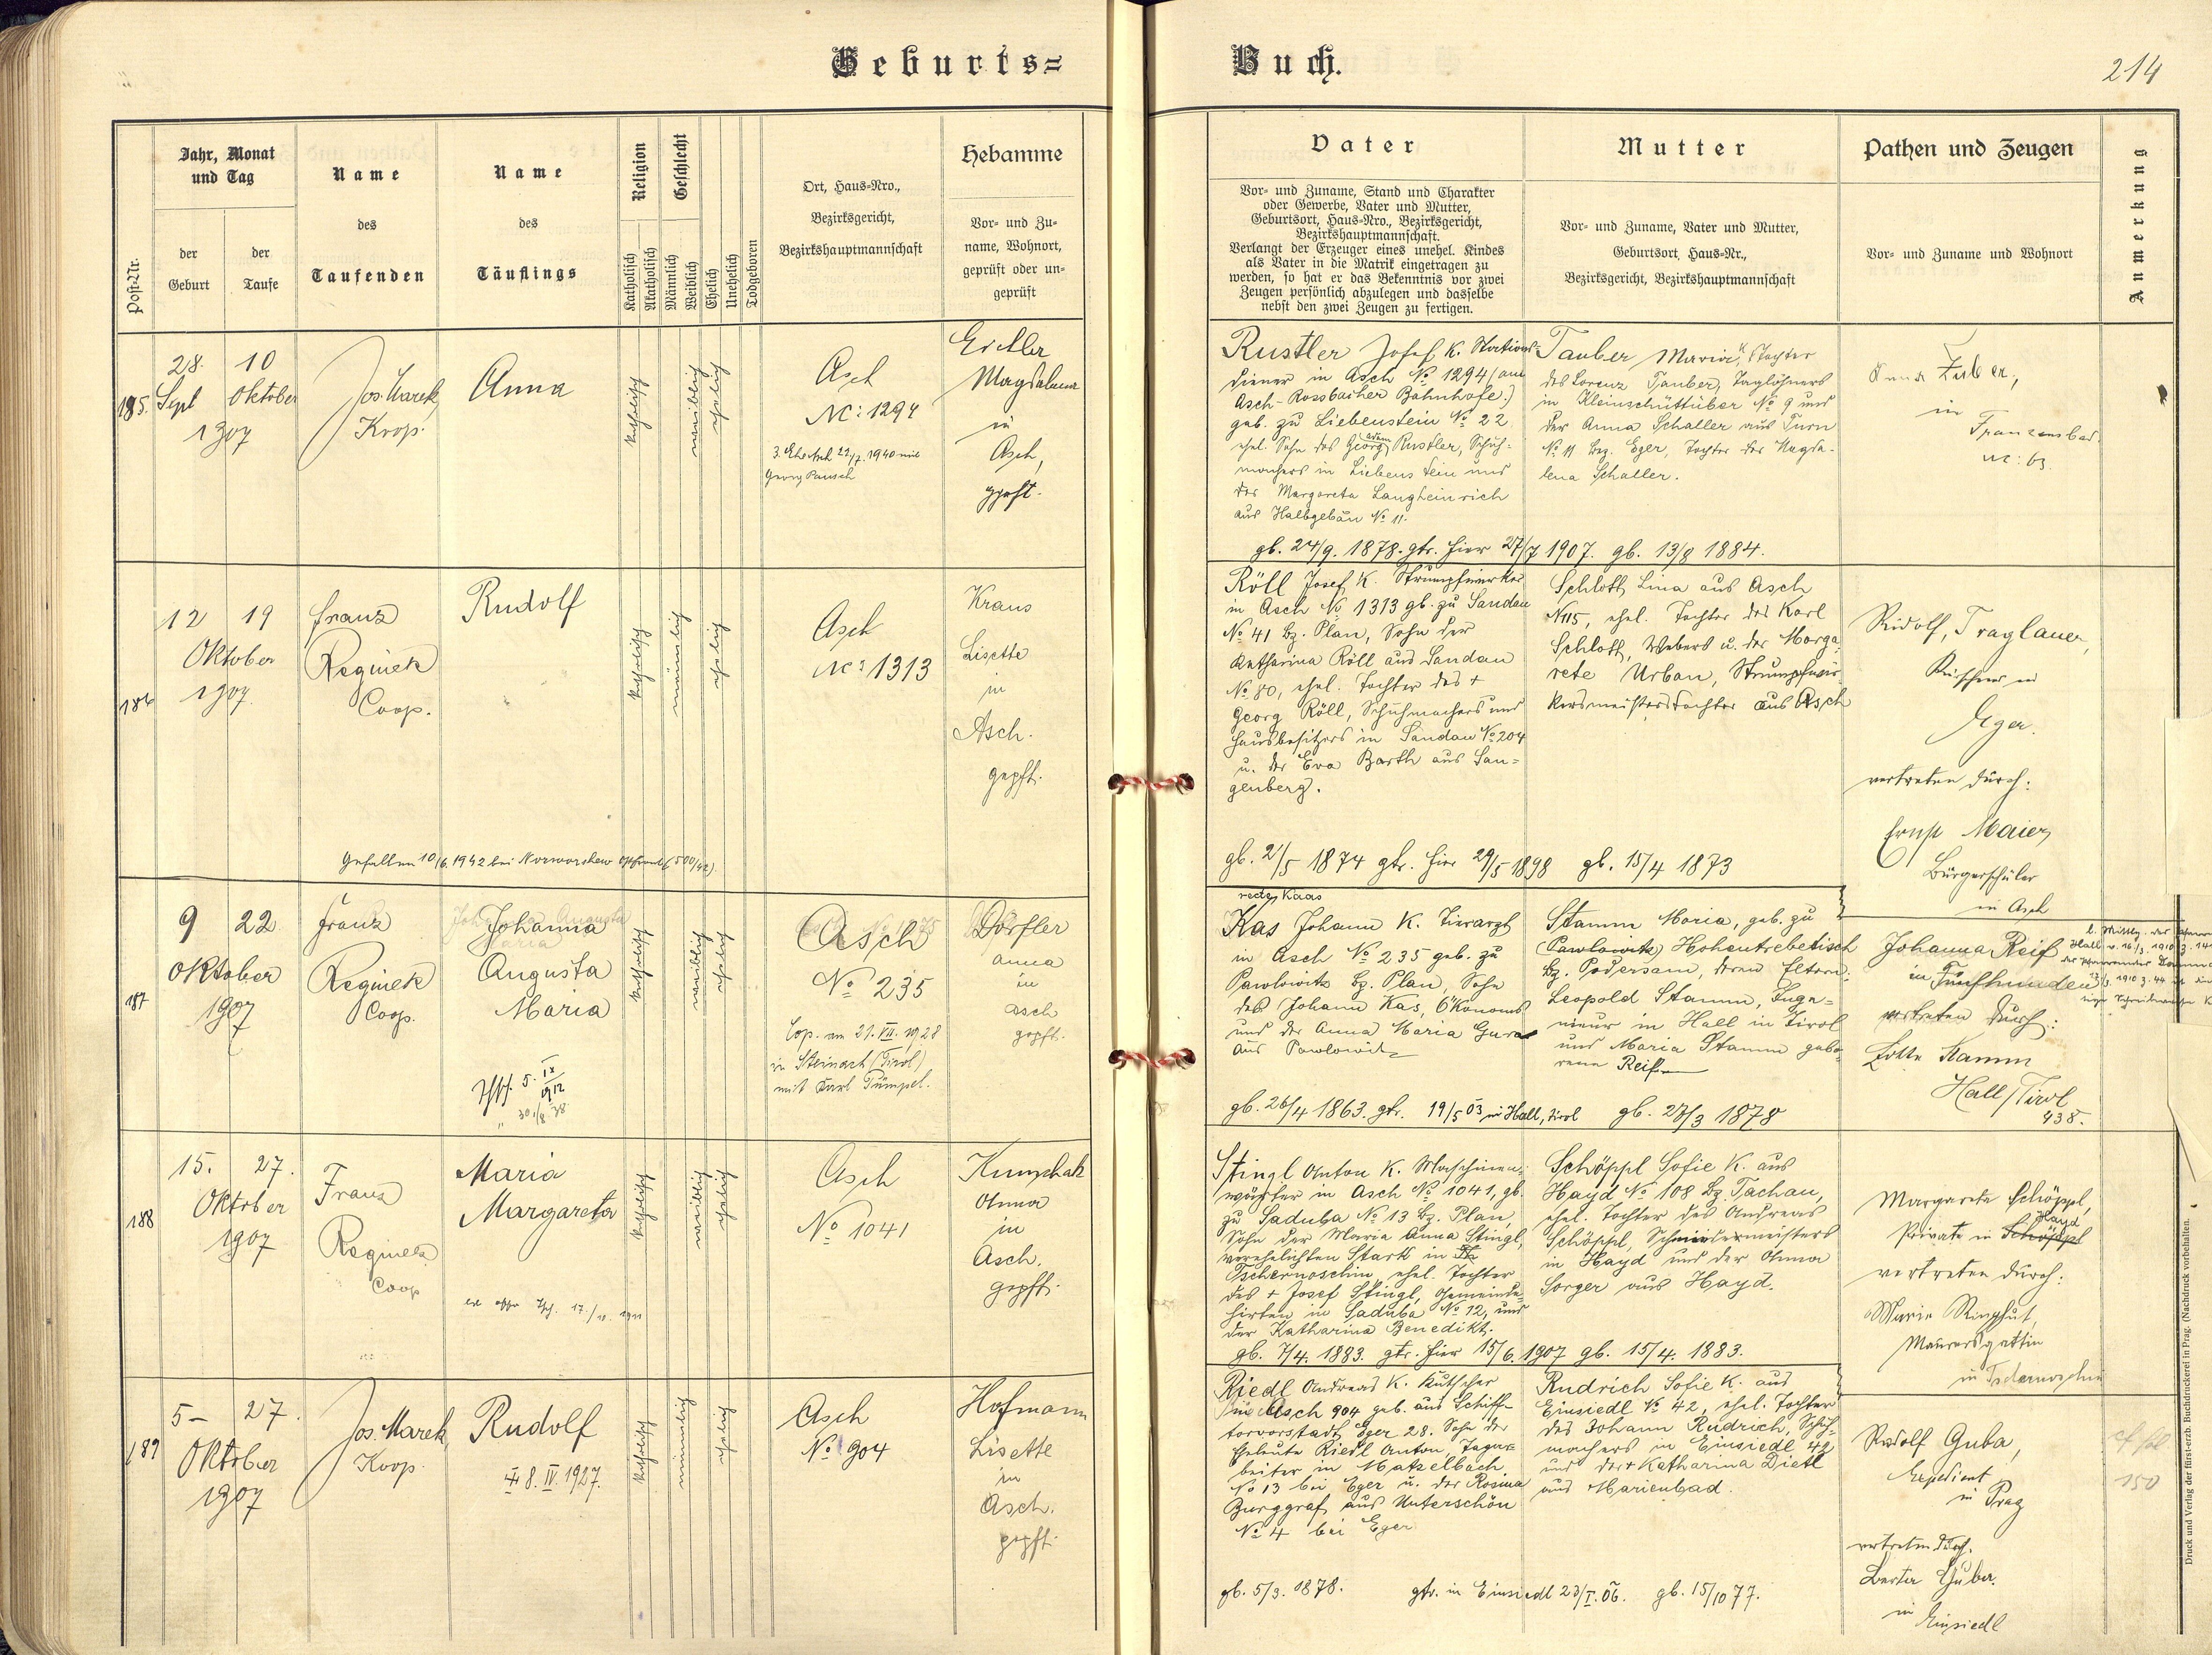 Geburts=
Buch.
214
Post-Nr.
Jahr, Monat
und Tag
der
Geburt
der
Taufe
Name
des
Taufenden
Name
des
Täuflings
Religion
Katholisch
Akatholisch
Geschlecht
Männlich
Weiblich
Ehelich
Unehelich
Todgeboren
Ort, Haus-Nro.,
Bezirksgericht,
Bezirkshauptmannschaft
Hebamme
Vor- und Zu-
name, Wohnort,
geprüft oder un-
geprüft
Vater
Vor- und Zuname, Stand und Charakter
oder Gewerbe, Vater und Mutter,
Geburtsort, Haus-Nro., Bezirksgericht,
Bezirkshauptmannschaft.
Verlangt der Erzeuger eines unehel. Kindes
als Vater in die Matrik eingetragen zu
werden, so hat er das Bekenntnis vor zwei
Zeugen persönlich abzulegen und dasselbe
nebst den zwei Zeugen zu fertigen.
Mutter
Vor- und Zuname, Vater und Mutter,
Geburtsort, Haus-Nr.,
Bezirksgericht, Bezirkshauptmannschaft
Pathen und Zeugen
Vor- und Zuname und Wohnort
Anmerkung
185.
28. 10
Sept Oktober
1907
Jos. Marek,
Koop.
Anna
katholisch
weiblich
ehelich
Asch
Nc: 1294
3. Ehe Asch 22/7. 1940 mit
Georg Pausch
Magdalena
in
Asch,
gpft.
Rustler Josef k. Stations-
diener in Asch No 1294 (am
Asch-Rossbacher Bahnhofe.)
geb. zu Liebenstein No 22
ehel. Sohn des Georg Adam Rustler, Schuh-
machers in Liebenstein und
der Margareta Langheinrich
aus Halbgebäu No 11.
gb. 24/9. 1878. gtr. hier 27/7 1907. gb. 13/8 1884.
Tauber Maria k. Tochter
des Lorenz Tauber, Taglöhners
in Kleinschüttüber No 9 und
der Anna Schaller aus Turn
No 11 Bez. Eger, Tochter der Magda-
lena Schaller.
Anna
in
Franzensbad.
Nc: 63.
186
12 19
Oktober
1907.
Franz
Reginek
Coop.
Rudolf
katholisch
männlich
ehelich
Asch
Nc: 1313
Gefallen 10/6. 1942 bei
Kraus
Lisette
in
Asch.
gepft.
Röll Josef k. Strumpfwirker
in Asch No 1313 gb. zu Sandau
No 41 Bz. Plan, Sohn der
Katharina Röll aus Sandau
No 80, ehel. Tochter des +
Georg Röll, Schuhmachers und
Hausbesitzers in Sandau No 204
u. der Eva Barth aus San-
genberg.
gb. 2/5 1874 gtr. hier 29/5 1898 gb. 15/4 1873
Schloth Lina aus Asch
N 115, ehel. Tochter des Karl
Schloth, Webers u. der Marga-
rete Urban, Strumpfwir-
kersmeisterstochter aus Asch
Rudolf, Traglauer,
in
Eger.
vertreten durch:
Ernst Maier,
Bürgerschüler
in Asch
187
9 22.
Oktober
1907
Franz
Reginek
Coop.
Johanna
Augusta
Maria
5. IX
1912
30./8 38
katholisch
weiblich
ehelich
Asch
No 235
Cop. am 21. VII. 1928
in Steinach (Tirol)
mit Karl Pümpel.
Dörfler
Anna
in
Asch
gepft.
recte Kaas
Kas Johann k. Tierarzt
in Asch No 235 geb. zu
Pawlowitz Bz. Plan, Sohn
des Johann Kas, Ökonoms
und der Anna Maria
aus Pawlowitz
gb. 26/4 1863. gtr. 19/5 03 in Hall, Tirol gb. 27/3 1878
Stamm Maria, geb. zu
(Pawlowitz) Hohentrebetisch
Bz. Podersam, deren Eltern:
Leopold Stamm, Inge-
nieur in Hall in Tirol
und Maria Stamm gebo-
rene Reif
Johanna Reif
in Fünfhunden
vertreten durch:
Lotte Stamm
Hall/Tirol
438.
188
15. 27.
Oktober
1907
Franz
Reginek
Coop
Maria
Margareta
katholisch
weiblich
ehelich
Asch
No 1041
Anna
in
Asch.
gepft.
Stingl Anton k. Maschinen-
wärter in Asch No 1041, gb.
zu Saduba No 13 Bz. Plan,
Sohn der Maria Anna Stingl,
verehelichten Stark in
Tschernoschin, ehel. Tochter
des + Josef Stingl, Gemeinde-
hirten in Saduba No 12, und
der Katharina Benedikt.
gb. 7/4. 1883. gtr. hier 15/6. 1907 gb. 15/4. 1883.
Schöppl Sofie k. aus
Hayd No 108 Bz. Tachau,
ehel. Tochter des Andreas
Schöppl, Schneidermeisters
in Hayd und der Anna
Sorger aus Hayd.
Margareta Schöppl,
Private in Schöppl Hayd
vertreten durch:
Marie
Maurersgattin
in Tschernoschin
189
5- 27.
Oktober
1907
Jos. Marek,
Koop.
Rudolf
8. IV. 1927.
katholisch
männlich
ehelich
Asch
No 904
Hofmann
Lisette
in
Asch.
gepft.
Riedl Andreas k. Kutscher
in Asch 904 geb. aus Schiff-
torvorstadt Eger 28. Sohn der
Eheleute Riedl Anton, Tagar-
beiter in Matzelbach
No 13 bei Eger u. der Rosina
Burggraf aus Unterschön
No 4 bei Eger
gb. 5/3. 1878. gtr. in Einsiedl 23/I. 06. gb. 15/10 77.
Rudrich Sofie k. aus
Einsiedl No 42, ehel. Tochter
des Johann Rudrich, Schuh-
machers in Einsiedl 42
und der + Katharina Dietl
aus Marienbad.
Rudolf Guba,
Expedient
in Prag
vertreten durch.
Berta Guba.
in
Einsiedl
150
Druck und Verlag der fürst-erzb. Buchdruckerei in Prag. (Nachdruck vorbehalten.